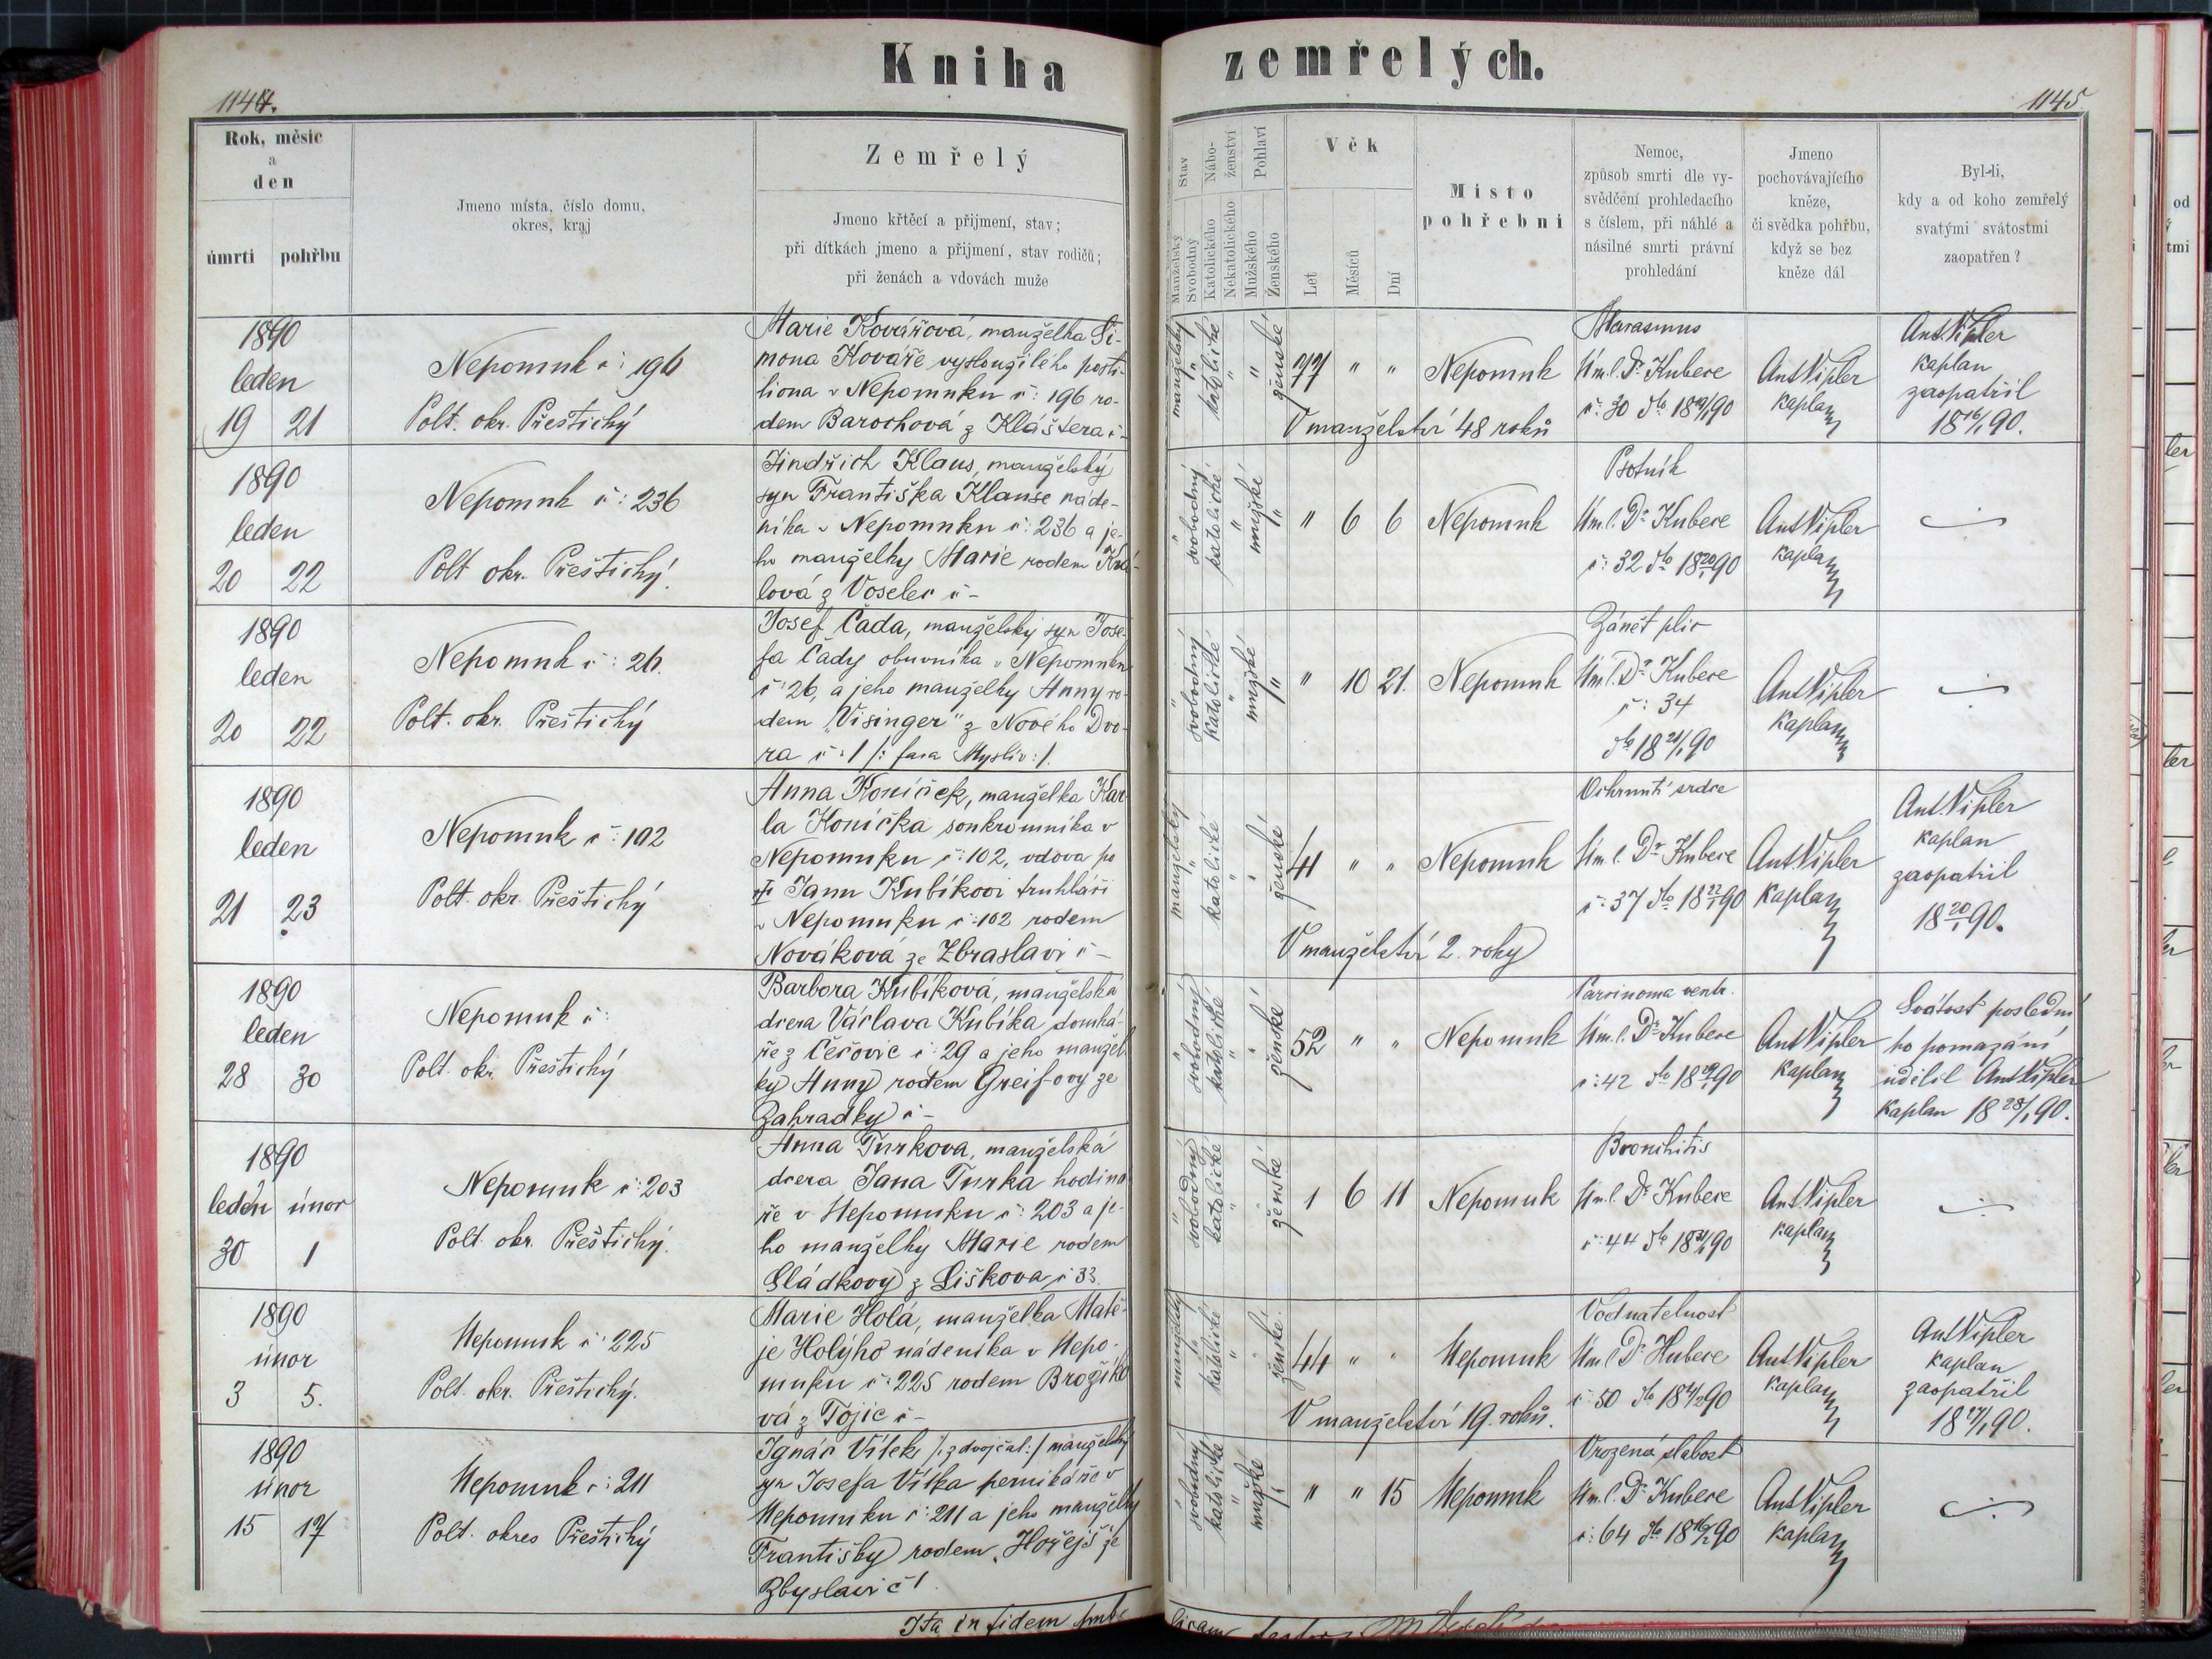 Kniha zemřelých.
1144.
1145
Rok, měsíc
a
den
úmrtí pohřbu
Jmeno místa, číslo domu,
okres, kraj
Zemřelý
Jmeno křtěcí a přijmení, stav;
při dítkách jmeno a přijmení, stav rodičů;
při ženách a vdovách muže
Stav
Manželský
Svobodný
Nábo-
ženství
Katolického
Nekatolického
Pohlaví
Mužského
Ženského
Věk
Let
Měsíců
Dní
Místo
pohřební
Nemoc,
způsob smrti dle vy-
svědčení prohledacího
s číslem, při náhlé a
násilné smrti právní
prohledání
Jmeno
pochovávajícího
kněze,
či svědka pohřbu,
když se bez
kněze dál
Byl-li,
kdy a od koho zemřelý
svatými svátostmi
zaopatřen?
1890
leden
19 21
Nepomuk č: 196
Polt. okr. Přeštický
Marie Kovářová, manželka Ši-
mona Kováře vysloužilého posti-
liona v Nepomuku č: 196 ro-
dem Barochová z Kláštera č-
manželský
katolické
ženské
77 " "
V manželství 48 roků
Nepomuk
Marasmus
Úm. l. Dr. Kubece
č: 30 dto 18 19/1 90
Ant Vipler
kaplan
Ant. Vipler
kaplan
zaopatřil
18 16/1 90.
1890
leden
20 22
Nepomuk č: 236
Polt okr. Přeštický.
Jindřich Klaus, manželský
syn Františka Klause náde-
níka v Nepomuku č: 236 a je-
ho manželky Marie rodem Krá-
lová z Voselec č-
svobodný
katolické
mužské
" 6 6
Nepomuk
Psotník
Úm. l. Dr Kubece
č: 32 dto 18 20/1 90
Ant Vipler
kaplan
1890
leden
20 22
Nepomuk č: 26.
Polt. okr. Přeštický
Josef Čada, manželský syn Jose-
fa Čady obuvníka v Nepomuku
č: 26, a jeho manželky Anny ro-
dem "Visinger" z Nového Dvo-
ra č: 1 /: fara Mysliv :/.
svobodný
katolické
mužské
" 10 21.
Nepomuk
Zánět plic
Úm. l. Dr Kubece
č: 34
dto 18 21/1 90
Ant Vipler
kaplan
1890
leden
21 23
Nepomuk č: 102
Polt. okr. Přeštický
Anna Koníček, manželka Kar-
la Koníčka soukromníka v
Nepomuku č: 102, vdova po
Janu Kubíkovi truhláři
v Nepomuku č: 102 rodem
Nováková ze Zbraslavi č-
manželský
katolické
ženské
41 " "
V manželství 2. roky
Nepomuk
Ochrnutí srdce
Úm. l. Dr Kubece
č: 37 dto 18 22/1 90
Ant Vipler
kaplan
Ant. Vipler
kaplan
zaopatřil
18 20/1 90.
1890
leden
28 30
Nepomuk č:
Polt. okr. Přeštický
Barbora Kubíková, manželská
dcera Václava Kubíka domká-
ře z Čečovic č: 29 a jeho manžel-
ky Anny rodem Greif-ovy ze
Zahradky č-
svobodný
katolické
ženské
52 " "
Nepomuk
Carcinoma ventr.
Úm. l. Dr Kubece
č: 42 dto 18 29/1 90
Ant Vipler
kaplan
Svátost poslední-
ho pomazání
udělil Ant Vipler
kaplan 18 28/1 90.
1890
leden únor
30 1
Nepomuk č: 203
Polt. okr. Přeštický.
Anna Turkova, manželská
dcera Jana Turka hodiná-
ře v Nepomuku č: 203 a je-
ho manželky Marie rodem
Sládkovy z Liškova č 33.
svobodný
katolické
ženské
1 6 11
Nepomuk
Bronchitis
Úm. l. Dr Kubece
č: 44 dto 18 31/1 90
Ant. Vipler
kaplan
1890
únor
3 5.
Nepomuk č: 225
Polt. okr. Přeštický.
Marie Holá, manželka Matě-
je Holýho nádeníka v Nepo-
muku č: 225 rodem Brožíko-
vá z Tojic č-
manželský
katolické
ženské
44 " "
V manželství 19. roků.
Nepomuk
Vodnatelnost
Úm. l. Dr Kubece
č: 50 dto 18 4/2 90
Ant Vipler
kaplan
Ant Vipler
kaplan
zaopatřil
18 27/1 90.
1890
únor
15 17
Nepomuk č: 211
Polt. okres Přeštický
Ignác Vítek /: z dvojčat :/ manželský
syn Josefa Vítka perníkáře v
Nepomuku č: 211 a jeho manželky
Františky rodem Hořejš ze
Zbyslavi č 1
svobodný
katolické
mužské
" " 15
Nepomuk
Vrozená slabost
Úm. l. Dr Kubece
č: 64 dto 18 16/2 90
Ant Vipler
kaplan
Ita in fidem